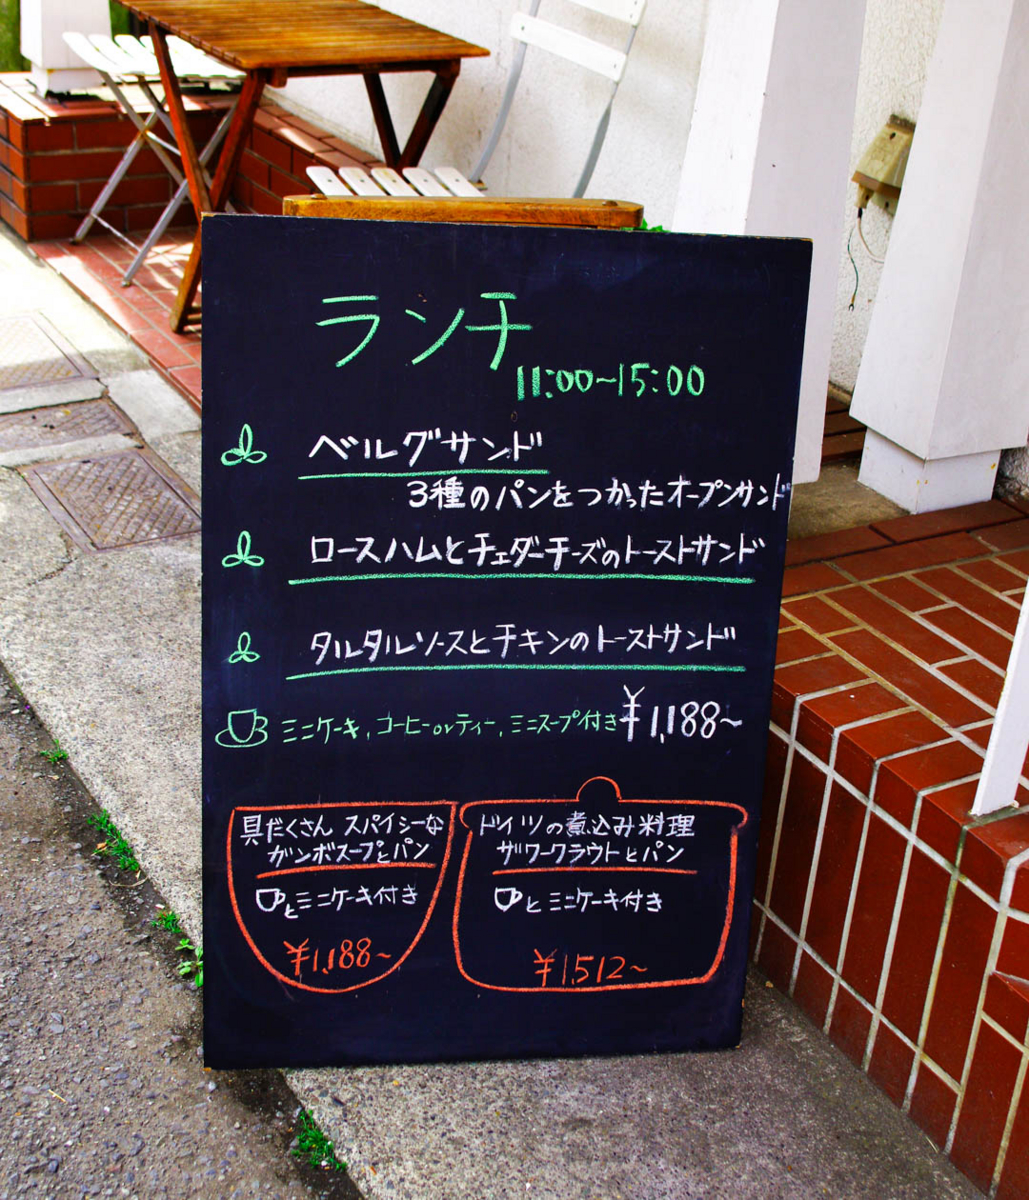 ランチ
11:00~15:00
ベルグサンド
3種のパンをつかったオープンサンド
ロースハムとチェダーチーズのトーストサンド
タルタルソースとチキンのトーストサンド
ミニケーキ,コーヒーorティー,ミニスープ付き ¥1,188~
具だくさん スパイシーな
ガンボスープとパン
とミニケーキ付き
¥1,188~
ドイツの煮込み料理
ザワークラウトとパン
とミニケーキ付き
¥1,512~